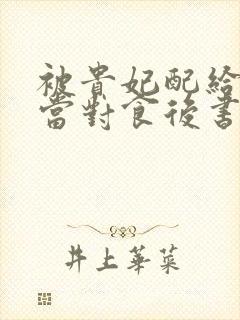 被貴妃配給
當對食後書
井上華菜